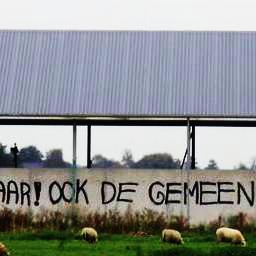 AAR! OOK DE GEMEEN